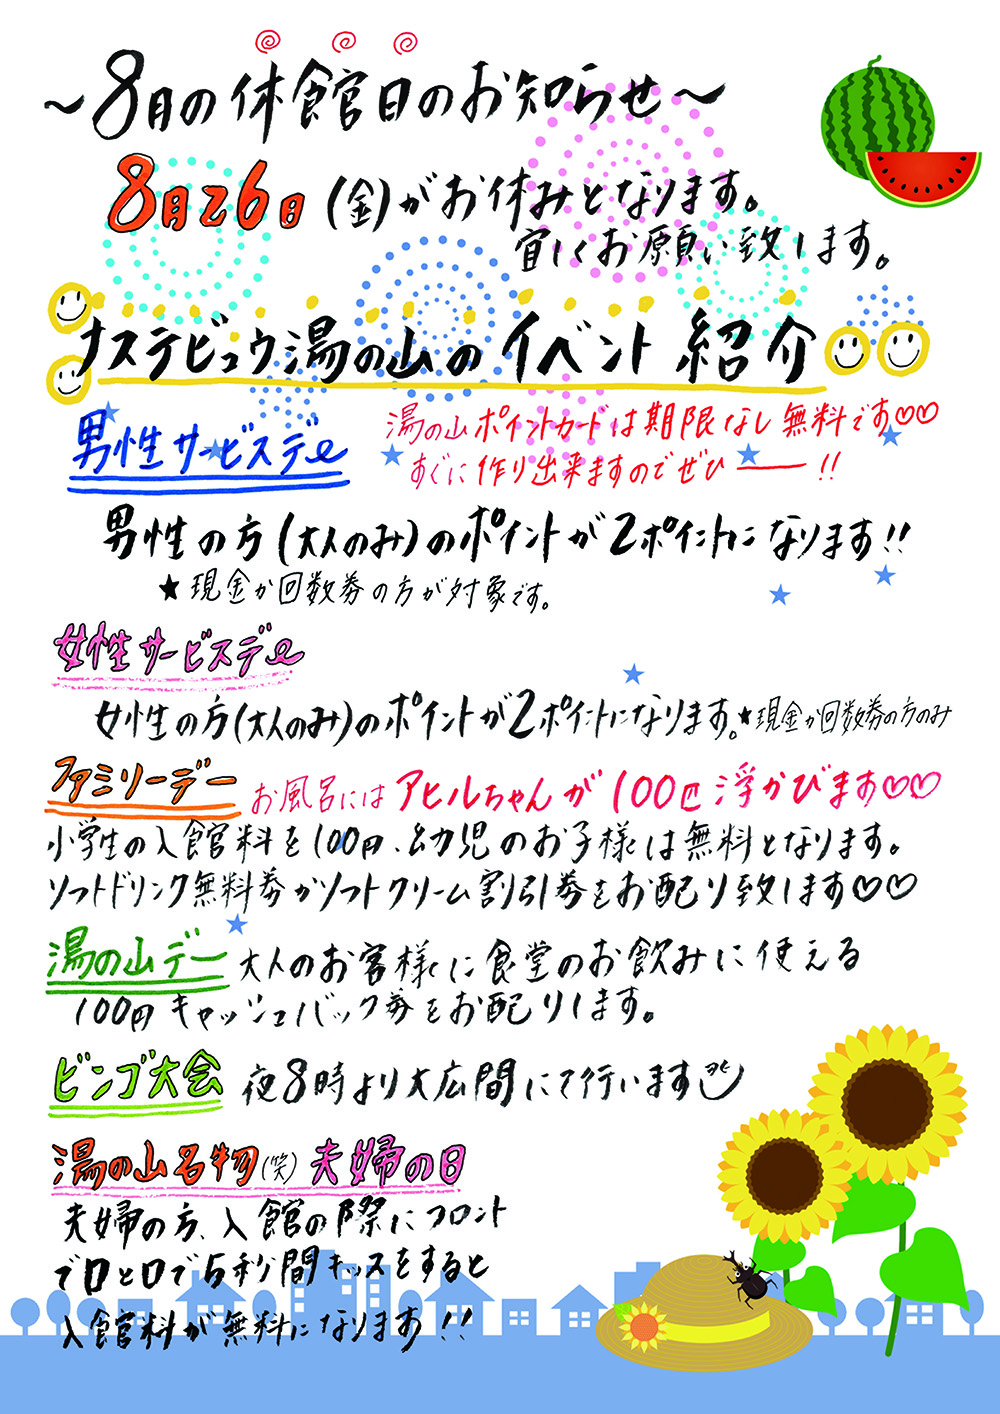 ～8月の休館日のお知らせ～
8月26日(金)がお休みとなります。
宜しくお願い致します。
ナステビュウ湯の山のイベント紹介
男性サービスデe
湯の山ポイントカードは期限なし無料です♡♡
すぐに作り出来ますのでぜひー!!
男性の方(大人のみ)のポイントが2ポイントになります!!
★現金か回数券の方が対象です。
女性サービスデe
女性の方(大人のみ)のポイントが2ポイントになります。★現金か回数券の方のみ
ファミリーデー お風呂にはアヒルちゃんが100匹浮かびます♡♡
小学生の入館料を100円、幼児のお子様は無料となります。
ソフトドリンク無料券かソフトクリーム割引券をお配り致します♡♡
湯の山デー 大人のお客様に食堂のお飲みに使える
100円キャッシュバック券をお配りします。
ビンゴ大会 夜8時より大広間にて行います
湯の山名物(笑)夫婦の日
夫婦の方、入館の際にフロント
で口と口で5秒間キッスをすると
入館料が無料になります!!